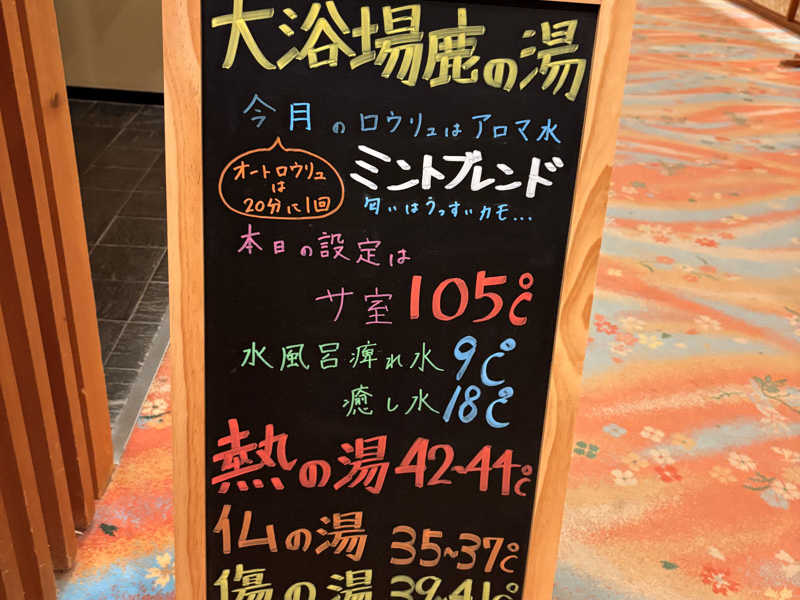 大浴場鹿の湯
今月のロウリュはアロマ水
オートロウリュ
は
20分に1回
ミントブレンド
匂いはうっすいカモ...
本日の設定は
サ室 105℃
水風呂痺れ水 9℃
癒し水 18℃
熱の湯 42~44℃
仏の湯 35~37℃
傷の湯 39~41℃